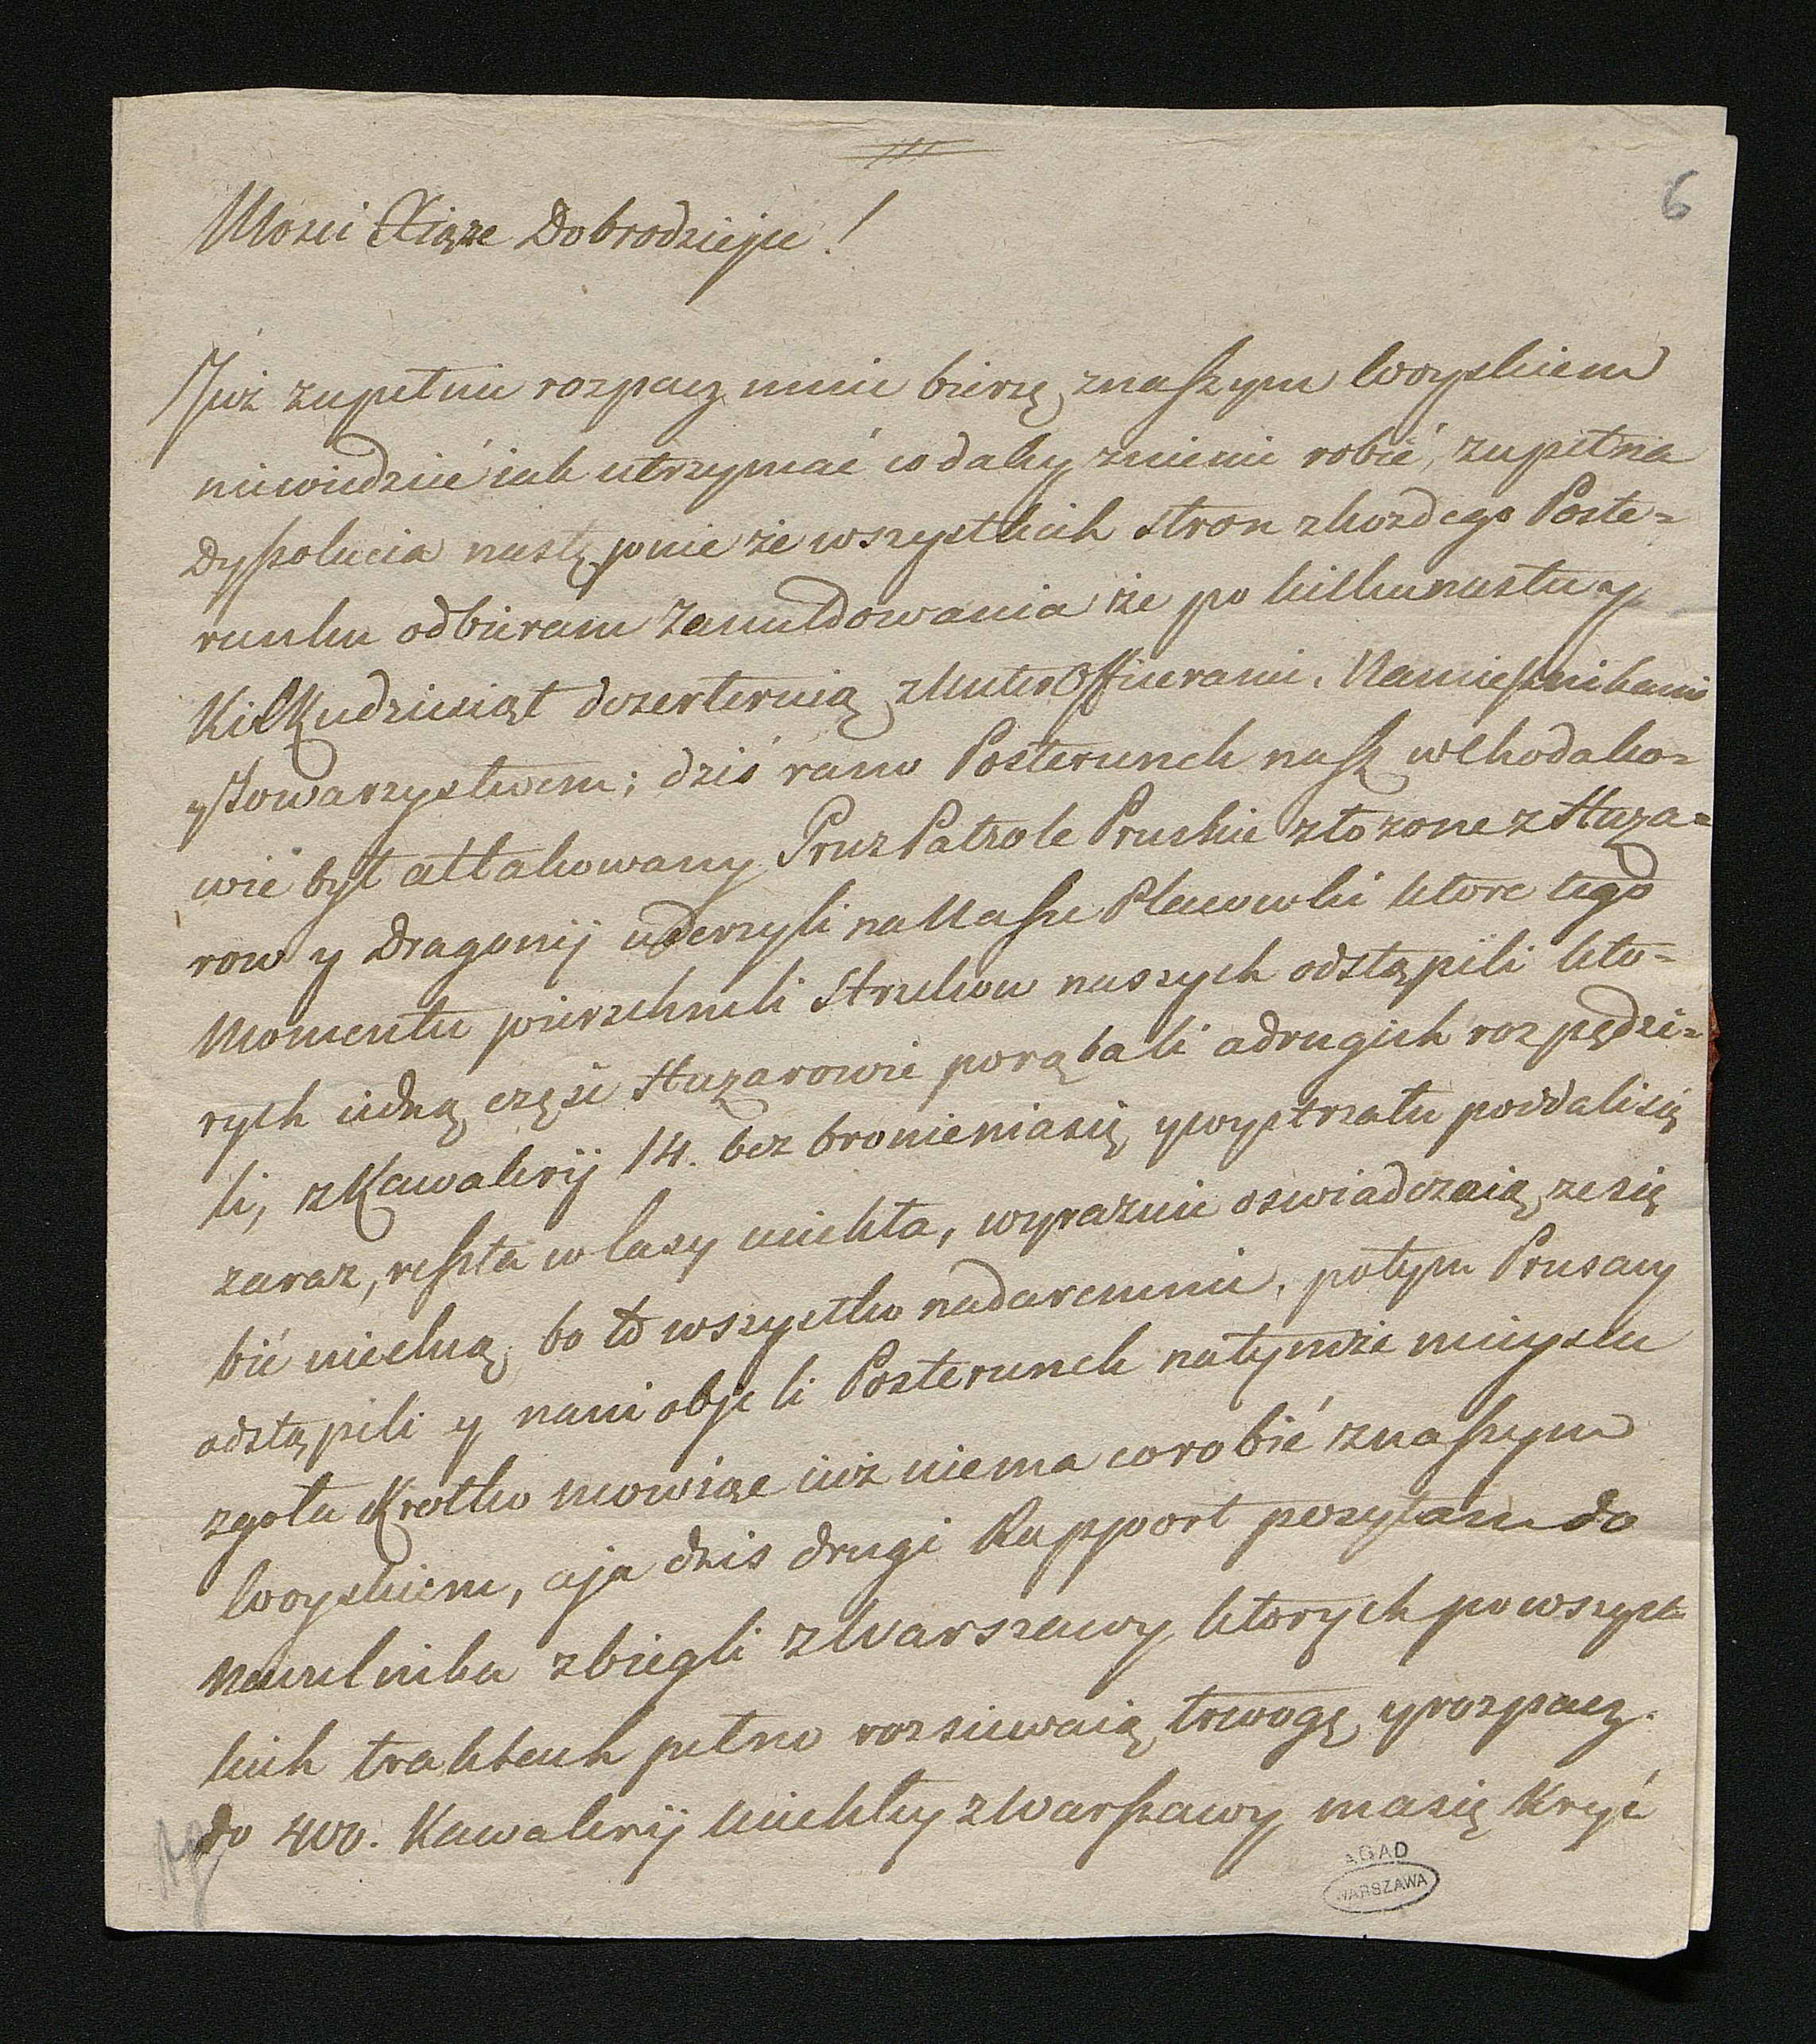 6
Mosci Xiąze Dobrodzieju!
Już zupełnie rozpacz mnie bierzę znaszym Woyskiem
niewiedzieć iak utrzymać co daley zniemi robić, zupełna
Dyssolucia następuie że wszystkich stron zkozdego Poste=
runku odbieram zameldowania że po kilkunastu y
Kilkudziesiąt dezerteruią zUnterOfficerami, Namiesnikami
yTowarzystwem; dziś rano Posterunek nasz wChodako=
wie był attakowany Prez Patrole Pruskie złozone z Huza=
row y Dragonij uderzyli na Nasze Placowki ktore tego
Momentu pierzchneli Strzelcow naszych odstąpili kto=
rych iedną częśc Huzarowie porąbali adrugich rozpędzi=
li, zKawalerij 14. bez bronieniasię ywystrzału poddalisię
zaraz, reszta w lasy uciekła, wyraznie oswiadczaią zesię
bić niechcą bo to wszystko nadaremnie, potym Prusacy
odstąpili y nasi objeli Posterunek natymże mieyscu
zgoła Krotko mowiąc iuz niema corobić znaszym
Woyskiem, aja dzis drugi Rapport posyłam do
Naczelnika zbiegli zWarszawy ktorych powszyst=
kich traktach pełno rozsiewaią trwogę yrozpacz.
do 400. Kawalerij uciekłey zWarszawy masię Kryć
AGAD
WARSZAWA